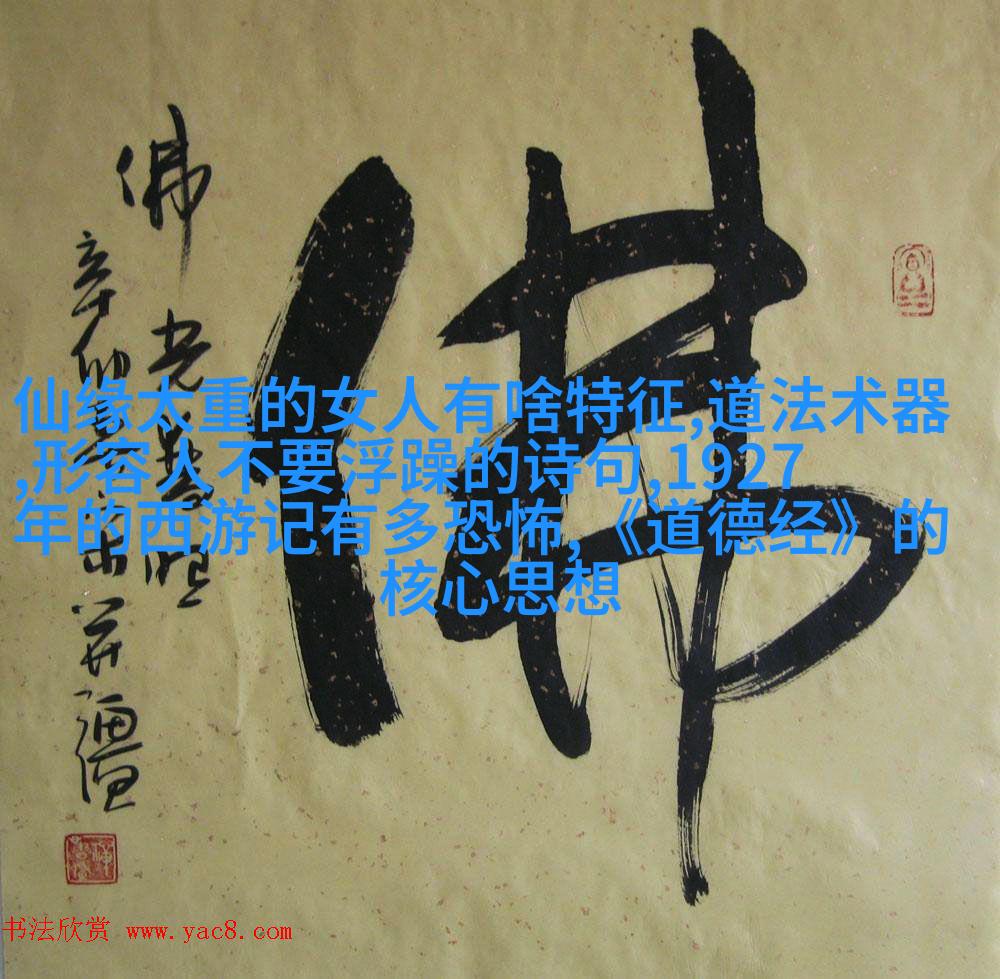 佛
佛光普照
仙缘太重的女人有啥特征,道法术器
,形容人不要浮躁的诗句,1927
年的西游记有多恐怖,《道德经》的
核心思想
书法欣赏 www.yac8.com